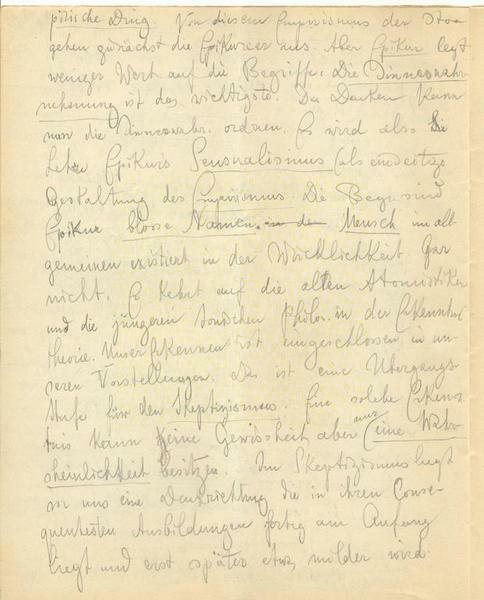 pirische Ding. Von diesem Empirismus der Stoa
gehen zunächst die Epikureer aus. Aber Epikur legt
weniger Wert auf die Begriffe. Die Sinneswahr
nehmung ist das wichtigste. Das Denken kann
nur die Sinneswahr. ordnen. Es wird also die
Lehre Epikurs Sensualismus (als einseitige
Gestaltung des Empirismus. Die Begr. sind
Epikur blosse Namen, in der Mensch im all
gemeinen existiert in der Wirklichkeit gar
nicht. Er kehrt auf die alten Atomistiker
und die jüngeren Ionischen Philos. in der Erkenntnis
theorie. Unser Erkennen ist eingeschlossen in un
seren Vorstellungen. Das ist eine Übergangs
stufe für den Skeptizismus. Eine solche Erkennt
nis kann keine Gewissheit aber nur (eine Wahr
scheinlichkeit besitzen. Im Skeptizismus liegt
vor uns eine Denkrichtung die in ihren Conse
quentesten Ausbildungen fertig am Anfang
liegt und erst später etwas milder wird.